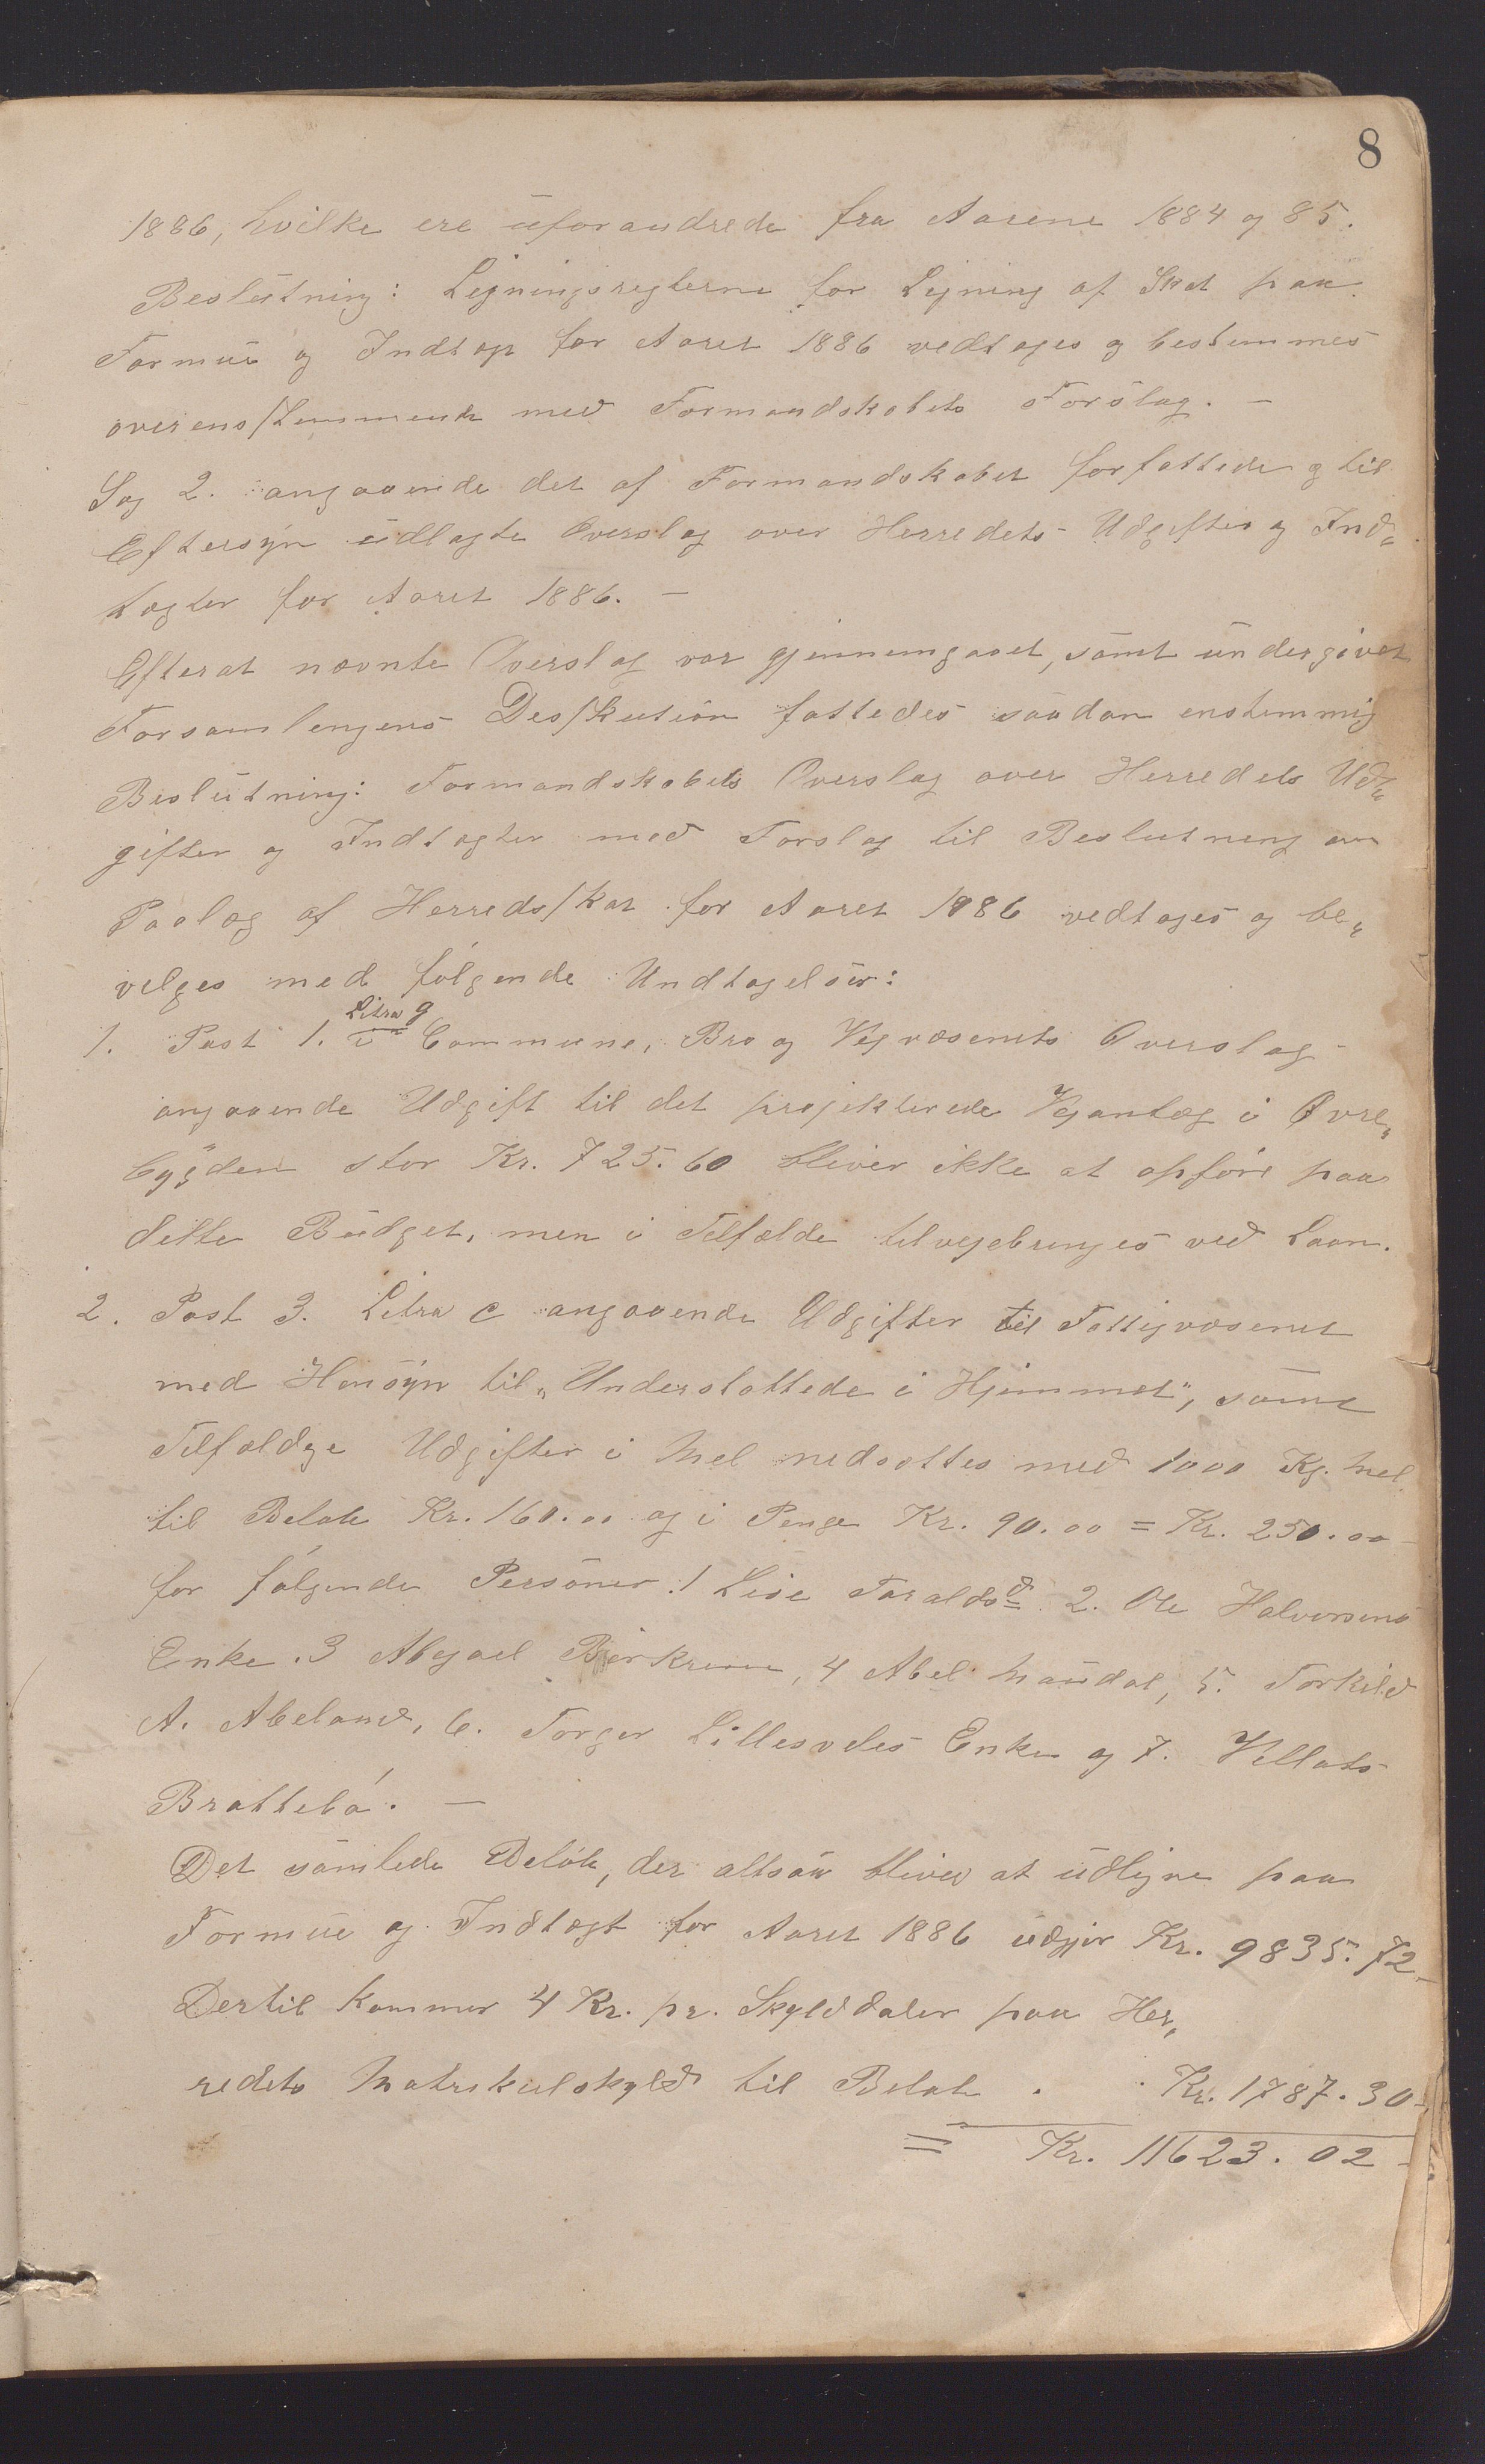 8
1886, hvilke ere uforandrede fra Aarene 1884 og 85.
Beslutning: Ligningsreglerne for Ligning af Skat paa
Formue og Indtægt for Aaret 1886 vedtages og bestemmes
overensstemmende med Formandskabets Forslag. –
Sag 2. angaaende det af Formandskabet forfattede og til
Eftersyn udlagte Overslag over Herredets Udgifter og Ind„
tægter for Aaret 1886. –
Efterat nævnte Overslag var gjennemgaaet, samt undergivet
Forsamlengens Deskution fattedes saadan enstemmig
Beslutning: Formandskabets Overslag over Herredets Ud„
gifter og Indtægter med Forslag til Beslutning om
Paalæg af Herredsskat for Aaret 1886 vedtages og be„
velges med følgende Undtagelser:
Litra g
1. Post 1. i Commune, Bro og Vejvæsenets Overslag
angaaende Udgift til det projekterede Vejanlæg i Øvre„
bygden stor Kr. 725.60 bliver ikke at opføre paa
dette Budget, men i Tilfælde tilvejebringes ved Laan.
2. Post 3. Litra c angaaende Udgifter til Fattigvæsenet
med Hensyn til „Understøttede i Hjemmet", samt
Tilfældige Udgifter i Mel nedsættes med 1000 Kg. Mel
til Beløb Kr. 160.00 og i Penge Kr. 90.00 = Kr. 250.00
for følgende Personer. 1 Lise Taraldsd. 2. Ole Halvorsens
Enke. 3 Abegael Birkrem, 4 Abel Maudal, 5. Torkild
A. Abeland, 6. Torger Lillesveles Enke og 7. Vellats
Brattebø. –
Det samlede Beløb, der altsaa bliver at udligne paa
Formue og Indtægt for Aaret 1886 udgjør Kr. 9835.72
Dertil kommer 4 Kr. pr. Skylddaler paa Her„
redets Matrikulskyld til Beløb . . Kr. 1787.30
= Kr. 11623.02